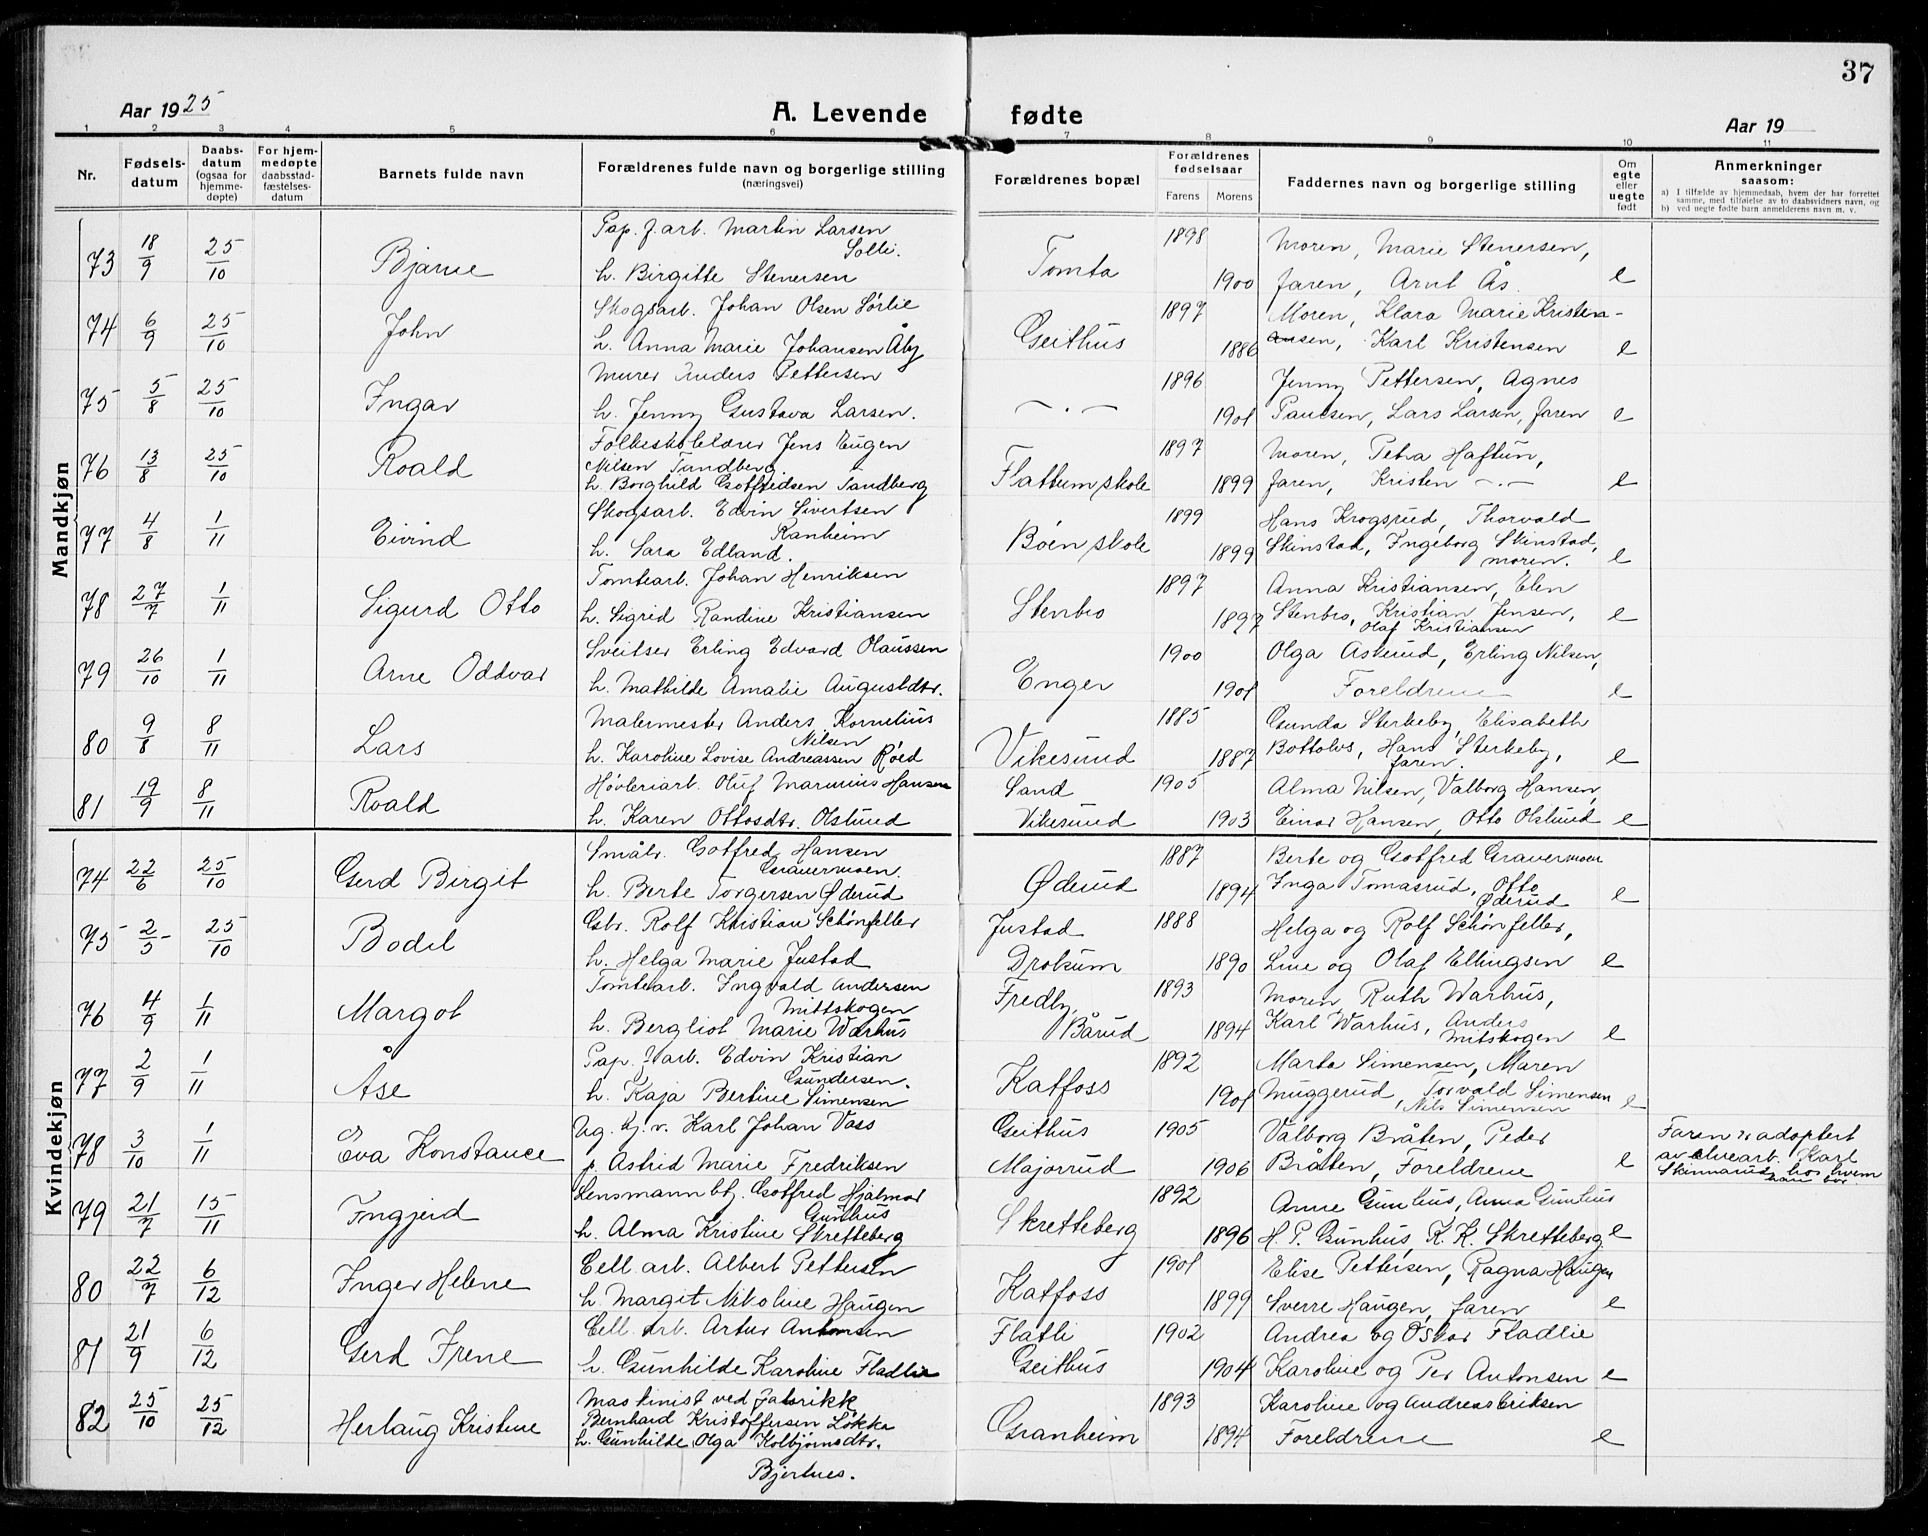 37
Aar 1925
A. Levende fødte
Aar 19
1 2 3 4 5 6 7 8 9 10 11
Nr.
Fødselsdatum
Daabsdatum (ogsaa for hjemmedøpte)
For hjemmedøpte daabsstadfæstelsesdatum
Barnets fulde navn
Forældrenes fulde navn og borgerlige stilling (næringsvei)
Forældrenes bopæl
Forældrenes fødselsaar
Farens Morens
Faddernes navn og borgerlige stilling
Om egte eller uegte født
Anmerkninger saasom:
a) I tilfælde av hjemmedaab, hvem der har forrettet samme, med tilføielse av to daabsvidners navn, og
b) ved uegte fødte barn anmelderens navn m. v.
Mandkjøn
73 18/9 25/10 Bjarne Pap. f. arb. Martin Larsen Solli. Tomta 1898 Moren, Marie Stenersen,
h. Birgitte Stenersen 1900 faren, Arnt Ås. e
74 6/9 25/10 John Skogsarb. Johan Olsen Sørlie Geithus 1897 Moren, Klara Marie Kristen-
h. Anna Marie Johansen Åby 1886 sen, Karl Kristensen e
75 5/8 25/10 Ingar Murer Anders Pettersen — . — 1896 Jenny Pettersen, Agnes
h. Jenny Gustava Larsen. 1901 Paulsen, Lars Larsen, faren e
76 13/8 25/10 Roald Folkeskolelærer Jens Eugen Nilsen Tandberg. Flattum skole 1897 Moren, Petra Haftun,
h. Borghild Gotfredsen Tandberg 1899 faren, Kristen — . — e
77 4/8 1/11 Eivind Skogsarb. Edvin Sivertsen Ranheim Bøen skole 1899 Hans Krogsrud, Thorvald
h. Sara Edland. 1899 Skinstad, Ingeborg Skinstad, moren. e
78 27/7 1/11 Sigurd Otto Tomtearb. Johan Henriksen Stenbro 1897 Anna Kristiansen, Elen
h. Sigrid Randine Kristiansen 1897 Stenbro, Kristian Jensen, Olaf Kristiansen e
79 26/10 1/11 Arne Oddvar Sveitser Erling Edvard Olaussen Enger 1900 Olga Aslerud, Erling Nilsen,
h. Mathilde Amalie Augustdtr. 1901 Foreldrene e
80 9/8 8/11 Lars Malermester Anders Kornelius Nilsen Vikesund 1885 Gunda Sterkeby, Elisabeth
h. Karoline Lovise Andreassen Røed 1887 Bottolvs, Hans Sterkeby, faren. e
81 19/9 8/11 Roald Høvleriarb. Oluf Marinius Hansen Sand 1905 Alma Nilsen, Valborg Hansen,
h. Karen Ottosdtr. Olslund Vikesund 1903 Einar Hansen, Otto Olslund e
Kvindekjøn
74 22/6 25/10 Gerd Birgit Småbr. Gotfred Hansen Gravermoen. Øderud 1887 Berte og Gotfred Gravermoen
h. Berte Torgersen Øderud 1894 Inga Tomasrud, Otto Øderud e
75 2/5 25/10 Bodil Gbr. Rolf Kristian Schönfelder Justad 1888 Helga og Rolf Schönfelder,
h. Helga Marie Justad Drolsum 1890 Line og Olaf Ellingsen e
76 4/9 1/11 Margot Tomtearb. Ingvald Andersen Mittskogen Fredly, 1893 Moren, Ruth Warhus,
h. Bergliot Marie Warhus Bårud 1894 Karl Warhus, Anders Mitskogen e
77 2/9 1/11 Åse Pap. f. arb. Edvin Kristian Gundersen. Katfoss 1892 Marta Simensen, Maren
h. Kaja Bertine Simensen 1901 Muggerud, Torvald Simensen Nils Simensen e
78 3/10 1/11 Eva Konstance Ug. gj. v. Karl Johan Vass Geithus 1905 Valborg Bråten, Peder Faren er adoptert
p. Astrid Marie Fredriksen Majorrud 1906 Bråten, Foreldrene e av elvearb. Karl
Skinnarud, hos hvem han bor
79 21/7 15/11 Ingjerd Lensmann btj. Gotfred Hjalmar Gunhus Skretteberg 1892 Anne Gunhus, Anna Gunhus
h. Alma Kristine Skretteberg 1896 H. P. Gunhus, K. K. Skretteberg e
80 22/7 6/12 Inger Helene Cell. arb. Albert Pettersen Katfoss 1901 Elise Pettersen, Ragna Haugen
h. Margit Nikoline Haugen 1899 Sverre Haugen, faren e
81 21/9 6/12 Gerd Irene Cell. arb. Artur Antonsen Flatli 1902 Andrea og Oskar Fladlie
h. Gunhilde Karoline Fladlie Geithus 1904 Karoline og Per Antonsen e
82 25/10 25/12 Herlaug Kristine Maskinist ved fabrikk Granheim 1893 Karoline og Andreas Eriksen
Bernhard Kristoffersen Løkka
h. Gunhilde Olga Kolbjørnsdtr. 1894 Foreldrene e
Bjertnes.